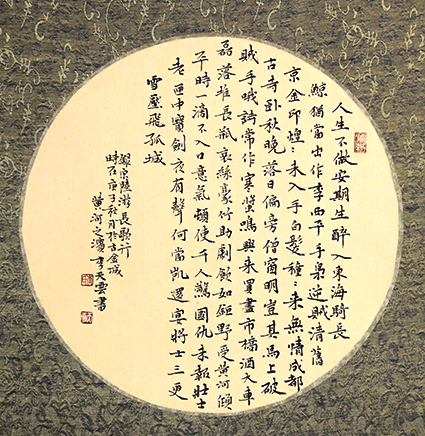 人生不做安期生醉入東海騎長
鯨猶當出作李西平手梟逆賊清舊
京金印煌〻未入手白髮種〻來無情成都
古寺臥秋晚落日偏旁僧窗明豈其馬上破
賊手哦詩常作寒螿鳴興來買盡市橋酒大車
磊落堆長瓶哀絲豪竹助劇飲如鉅野受黃河傾
平時一滴不入口意氣頓使千人驚國仇未報壯士
老匣中寶劍夜有聲何當凱還宴將士三更
雪壓飛孤城
錄宋陸游長歌行
時在庚子秋月於古金城
黃河之濱李天雲書